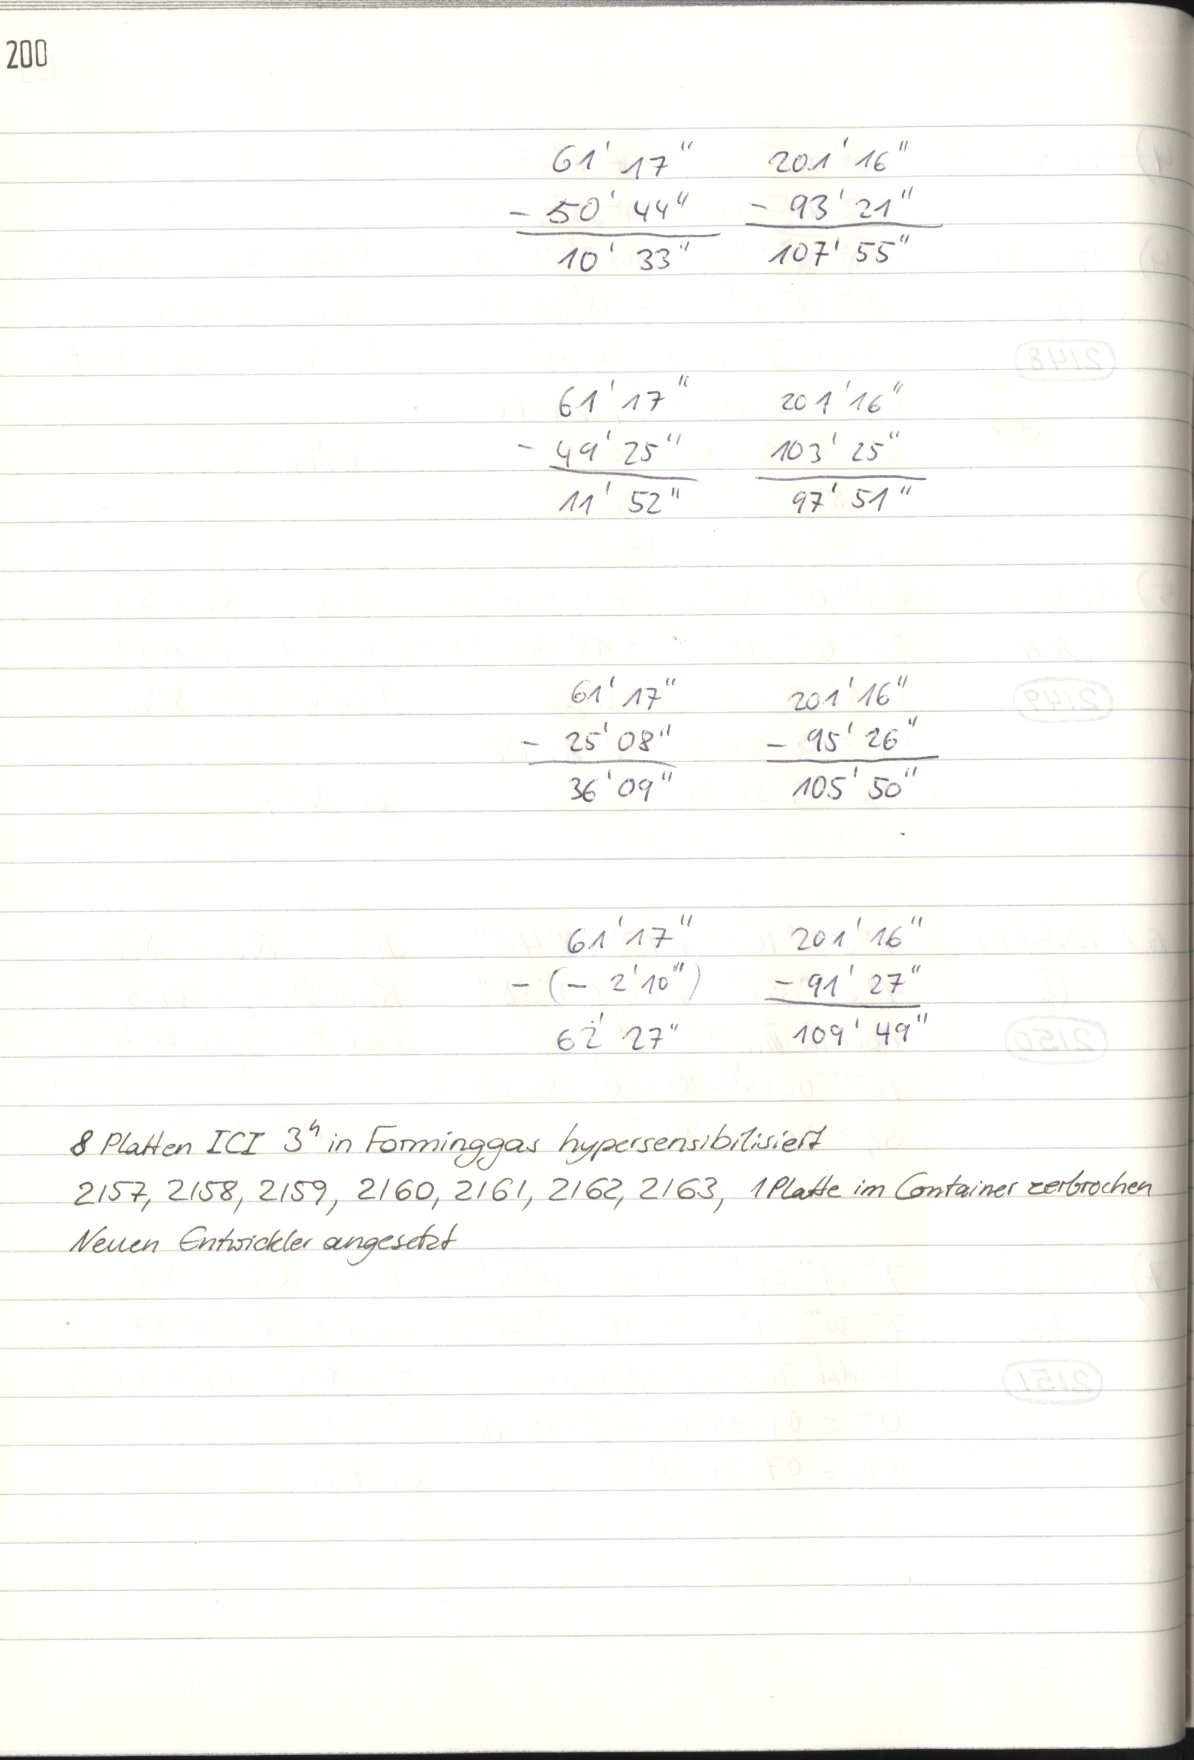 200
61' 17" 201' 16"
- 50' 44" - 93' 21"
10' 33" 107' 55"
61' 17" 201' 16"
- 49' 25" 103' 25"
11' 52" 97' 51"
61' 17" 201' 16"
- 25' 08" - 95' 26"
36' 09" 105' 50"
61' 17" 201' 16"
- (- 2' 10") - 91' 27"
62' 27" 109' 49"
8 Platten ICI 3ʰ in Forminggas hypersensibilisiert
2157, 2158, 2159, 2160, 2161, 2162, 2163, 1 Platte im Container zerbrochen
Neuen Entwickler angesetzt